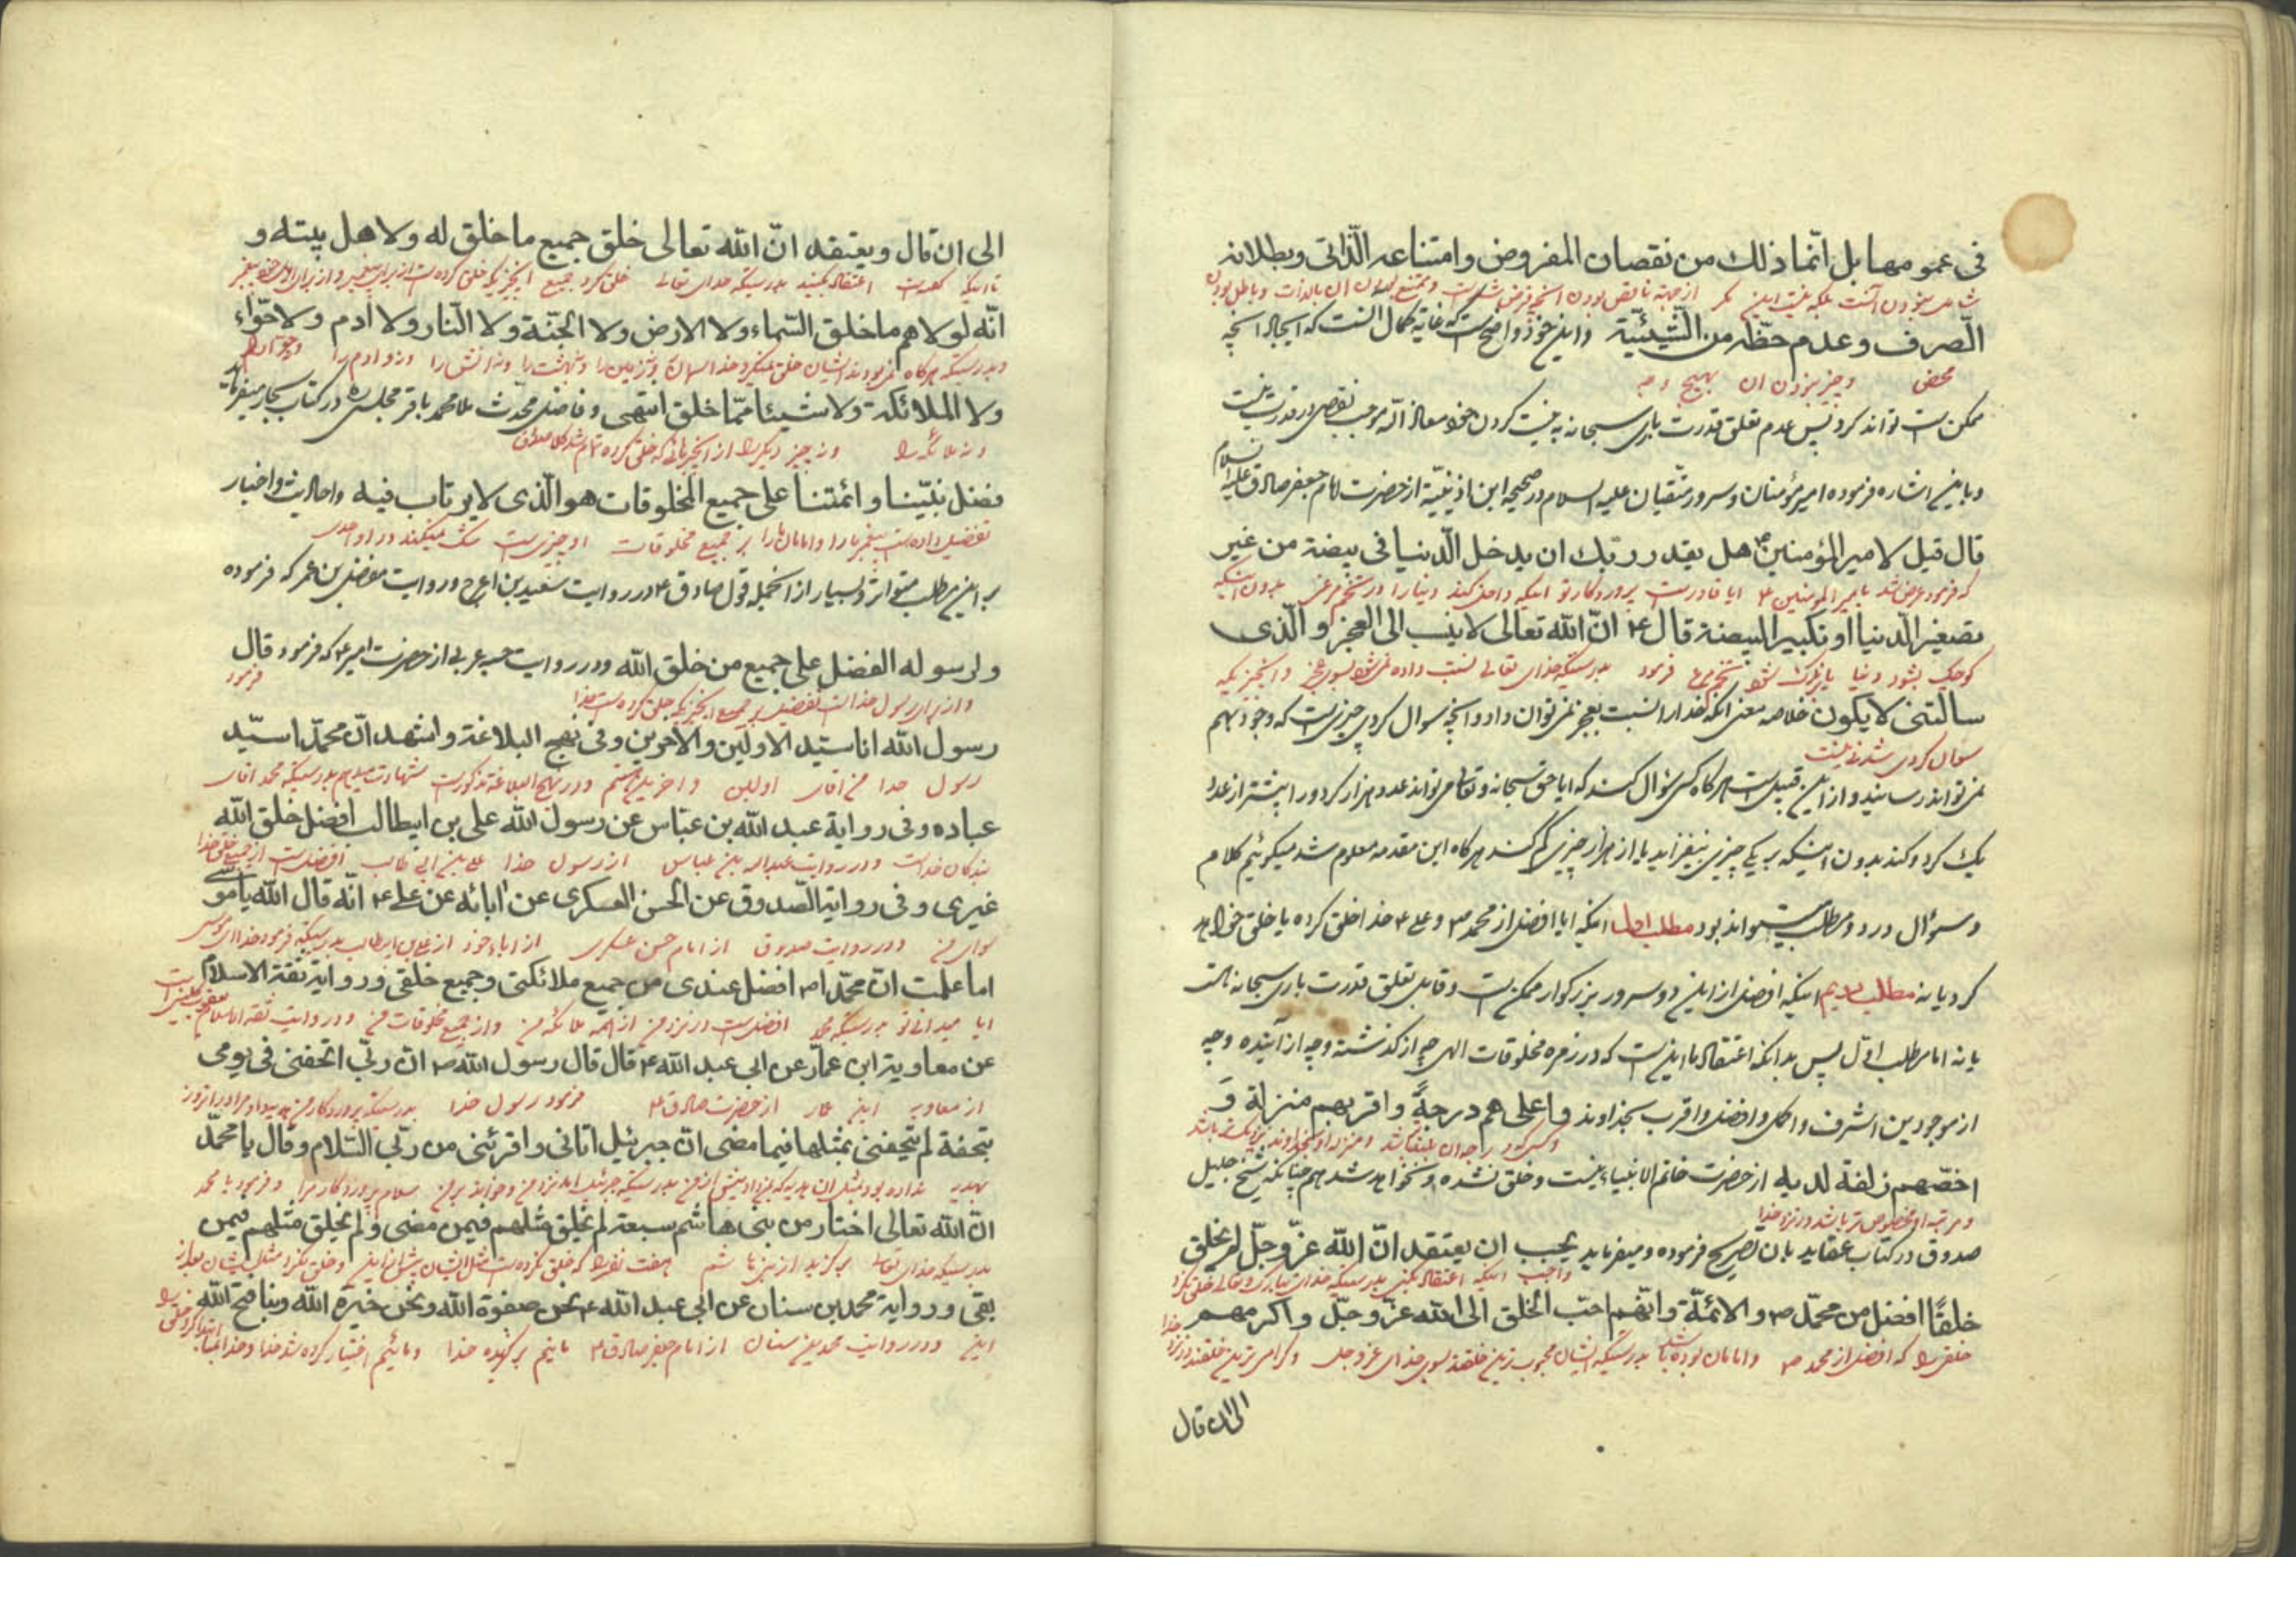 فی عمومها بل انّما ذلك من نقصان المفروض وامتناعه الذّاتی وبطلانه
شامل نبودن آنست بلکه نیست این مگر از جهة ناقص بودن آنچه فرض شده است وممتنع بودن آن بالذات وباطل بودن
الصّرف وعدم حظّه من الشّیئیّة واین خود واضح است که غایة کمال آنست که ایجاد آنچه
محض وچیز نبودن آن بهیچ وجه
ممکن است تواند کرد پس عدم تعلق قدرت باری سبحانه به نیست کردن خود معاذ الله موجب نقصی در قدرت نیست
وباین اشاره فرموده امیر مؤمنان وسرور متّقیان علیه السلام در صحیحه ابن اذینه از حضرت امام جعفر صادق علیه السلام
قال قیل لامیر المؤمنین ع هل یقدر ربّك ان یدخل الدّنیا فی بیضة من غیر
که فرمود عرض شد بامیر المؤمنین ع ایا قادر است پروردگار تو اینکه داخل کند دنیا را در تخم مرغی بدون اینکه
تصغیر الدّنیا او تکبیر البیضة قال ع انّ الله تعالی لا ینسب الی العجز والّذی
کوچک بشود دنیا یا بزرگ شود تخم مرغ فرمود بدرستیکه خدای تعالی نسبت داده نمیشود بسوی عجز وآنچیزیکه
سالتنی لا یکون خلاصه معنی آنکه خدا را نسبت بعجز نمی توان داد وآنچه سوال کردی چیزیست که وجود بهم
سوال کردی شدنی نیست
نمی تواند رسانید واز این قبیل است هرگاه کسی سؤال کند که ایا حق سبحانه وتعالی می تواند عدد هزار کرور را بیشتر از عدد
یك کرور کند بدون اینکه بر یکی چیزی بیفزاید یا از هزار چیزی کم کند هرگاه این مقدمه معلوم شد میگوئیم کلام
وسؤال در دو مطلب میتواند بود مطلب اول اینکه ایا افضل از محمد ص وعلی ع خدا خلق کرده یا خلق خواهد
کرد یا نه مطلب دویم اینکه افضل از این دو سرور بزرگوار ممکن است وقابل تعلق قدرت باری سبحانه است
یا نه اما مطلب اوّل پس بدانکه اعتقاد ما اینست که در زمره مخلوقات الهی چه از گذشته وچه از آینده وچه
از موجودین اشرف واکمل وافضل واقرب بخداوند واعلی هم درجةً واقربهم منزلة و
وکسی که درجه آن بلند باشد ومنزله او بخداوند نزدیکتر باشد
اخصّهم زلفة لدیه از حضرت خاتم الانبیاء نیست وخلق نشده ونخواهد شد هم چنانکه شیخ جلیل
ومرتبه او مخصوص تر باشد در نزد خدا
صدوق در کتاب عقاید بان تصریح فرموده ومیفرماید یجب ان یعتقد انّ الله عزّ وجلّ لم یخلق
واجب است اینکه اعتقاد بکنی بدرستیکه خدای تبارک وتعالی خلق نکرد
خلقًا افضل من محمّد ص والائمّة وانّهم احبّ الخلق الی الله عزّ وجلّ واکرمهم
خلقی را که افضل از محمد ص وامامان بوده باشد بدرستیکه ایشان محبوب ترین خلقند بسوی خدای عز وجل وگرامی ترین خلقند در نزد خدا
الی ان قال
الی ان قال ویعتقد انّ الله تعالی خلق جمیع ما خلق له ولاهل بیته و
تا اینکه گفته است اعتقاد بکنید بدرستیکه خدای تعالی خلق کرد جمیع آنچیزیکه خلق کرده است از برای پیغمبر واز برای اهل بیت پیغمبر
انّه لولاهم ما خلق السّماء ولا الارض ولا الجنّة ولا النّار ولا آدم ولا حوّاء
وبدرستیکه هرگاه نمی بودند ایشان خلق نمیکرد خدا آسمان ونه زمین را ونه بهشت را ونه آتش را ونه آدم را وحوا را
ولا الملائکة ولا شیئا ممّا خلق انتهی وفاضل محدّث ملا محمد باقر مجلسی ره در کتاب بحار میفرماید
ونه ملائکه را ونه چیز دیگر را از آنچیزهائی که خلق کرده تمام شد کلام صدوق
فضل نبیّنا وائمّتنا علی جمیع المخلوقات هو الّذی لا یرتاب فیه واحادیث واخبار
تفضیل داده است پیغمبر ما را وامامان ما را بر جمیع مخلوقات او چیزیست شک نمیکند در او احدی
بر این مطلب متواتر وبسیار از آنجمله قول صادق ع در روایت سعید بن اعرج وروایت مفضل بن عمر که فرموده
ولرسوله الفضل علی جمیع من خلق الله ودر روایت حبه عربی از حضرت امیر ع که فرمود قال
واز برای رسول خداست تفضیل بر جمیع آنچیزیکه خلق کرده است خدا فرمود
رسول الله انا سیّد الاولین والآخرین وفی نهج البلاغة واشهد انّ محمّدا سیّد
رسول خدا من آقای اولین وآخرین هستم ودر نهج البلاغه مذکور است شهادت میدهم بدرستیکه محمد آقای
عباده وفی روایة عبد الله بن عبّاس عن رسول الله علی بن ابیطالب افضل خلق الله
بندگان خداست ودر روایت عبدالله بن عباس از رسول خدا علی بن ابی طالب افضل است از جمیع خلق خدا
غیری وفی روایة الصّدوق عن الحسن العسکری عن آبائه عن علی ع انّه قال الله یا موسی
سوای من ودر روایت صدوق از امام حسن عسکری از اباء خود از علی بن ابیطالب بدرستیکه فرمود خدا ای موسی
اما علمت انّ محمّدا ص افضل عندی من جمیع ملائکتی وجمیع خلقی ودر روایة ثقة الاسلام
ایا میدانی تو بدرستیکه محمد افضل است در نزد من از همه ملائکه من واز جمیع مخلوقات من ودر روایت ثقة الاسلام
عن معاویة ابن عمّار عن ابی عبد الله ع قال قال رسول الله ص انّ ربّی اتحفنی فی یومی
از معاویه ابن عمار از حضرت صادق ع فرمود رسول خدا بدرستیکه پروردگار من هدیه داد مرا در این روز
بتحفة لم یتحفنی بمثلها فیما مضی انّ جبرئیل اتانی واقرئنی من ربّی السّلام وقال یا محمّد
بهدیه نداده بود بمثل آن هدیه که بمن داد پیش از من بدرستیکه جبرئیل آمد نزد من وخواند بر من سلام پروردگار مرا وفرمود یا محمد
انّ الله تعالی اختار من بنی هاشم سبعة لم یخلق مثلهم فیمن مضی ولم یخلق مثلهم فیمن
بدرستیکه خدای تعالی برگزید از بنی هاشم هفت نفر را که خلق نکرده است مثل ایشان پیش از این وخلق نکرد مثل ایشان بعد از
بقی ودر روایة محمد بن سنان عن ابی عبد الله ع نحن صفوة الله ونحن خیرة الله وبنا فتح الله
این ودر روایت محمد بن سنان از امام جعفر صادق ع مائیم برگزیده خدا ومائیم اختیار کرده شده خدا